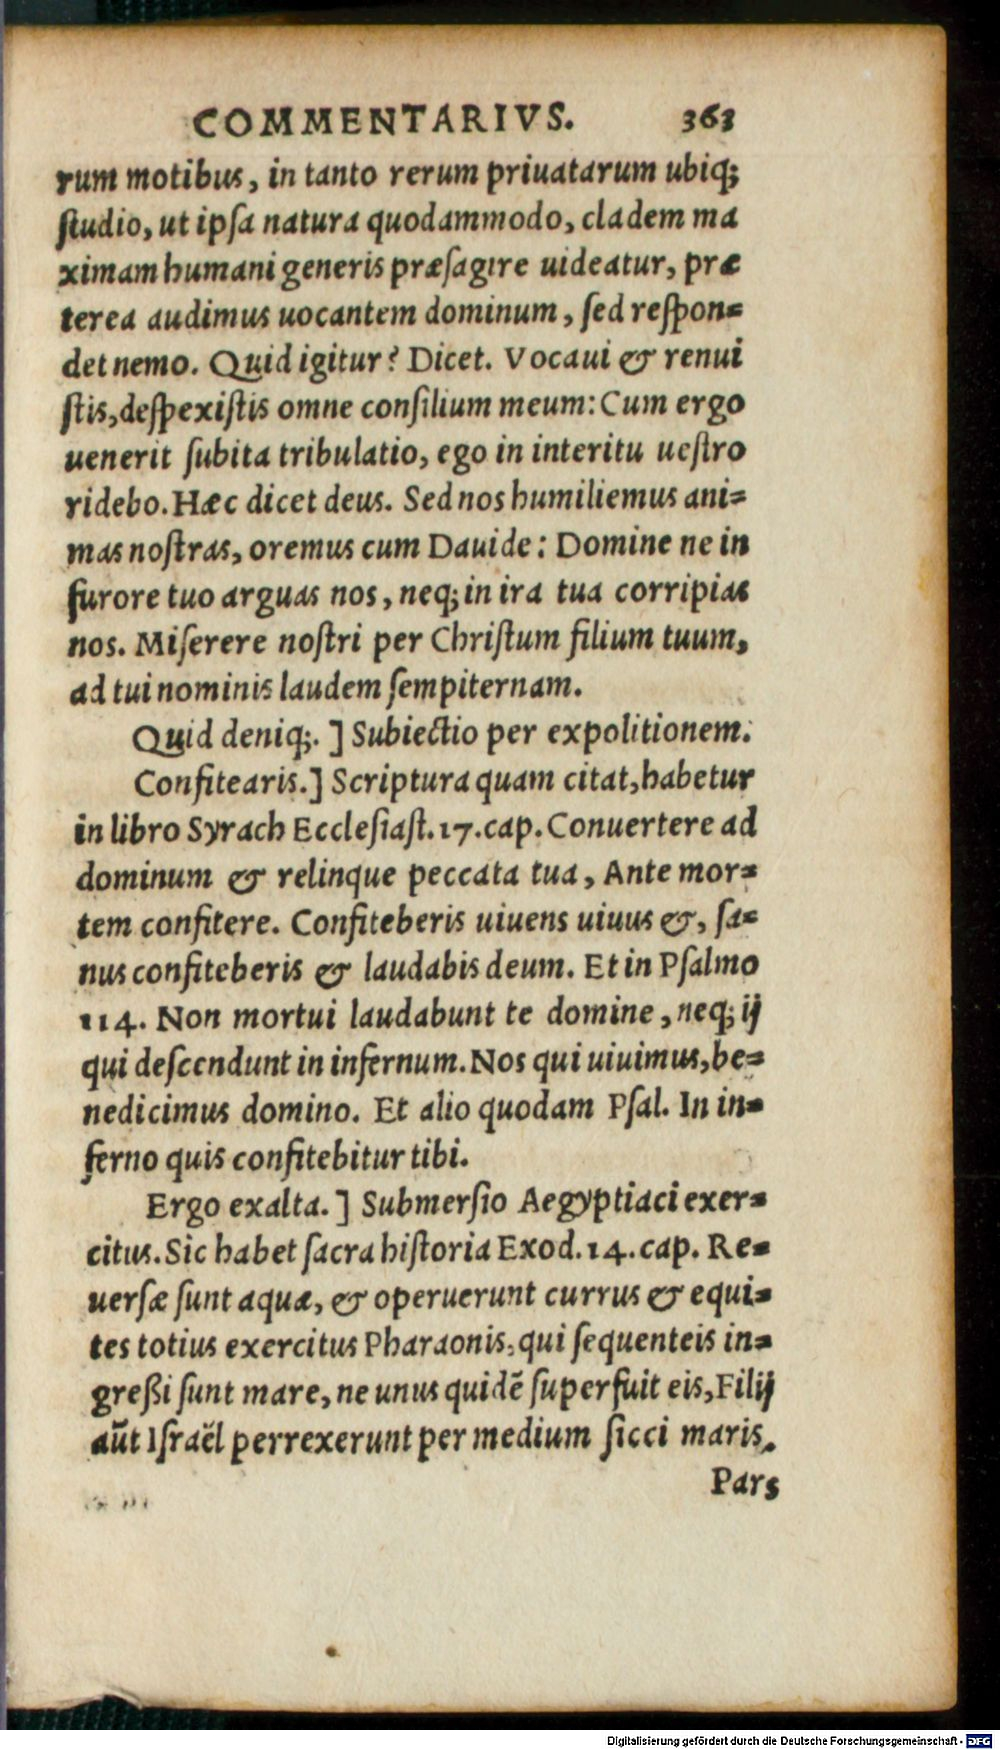 COMMENTARIVS. 363
rum motibus, in tanto rerum priuatarum ubiq;
ſtudio, ut ipſa natura quodammodo, cladem ma
ximam humani generis præſagire uideatur, præ
terea audimus uocantem dominum, ſed reſpon=
det nemo. Quid igitur? Dicet. Vocaui & renui
ſtis, deſpexiſtis omne conſilium meum: Cum ergo
uenerit ſubita tribulatio, ego in interitu ueſtro
ridebo. Hæc dicet deus. Sed nos humiliemus ani=
mas noſtras, oremus cum Dauide: Domine ne in
furore tuo arguas nos, neq; in ira tua corripias
nos. Miſerere noſtri per Chriſtum filium tuum,
ad tui nominis laudem ſempiternam.
Quid deniq;. ] Subiectio per expolitionem.
Confitearis.] Scriptura quam citat, habetur
in libro Syrach Eccleſiaſt. 17. cap. Conuertere ad
dominum & relinque peccata tua, Ante mor=
tem confitere. Confiteberis uiuens uiuus &, ſa=
nus confiteberis & laudabis deum. Et in Pſalmo
114. Non mortui laudabunt te domine, neq; ij
qui deſcendunt in infernum. Nos qui uiuimus, be=
nedicimus domino. Et alio quodam Pſal. In in=
ferno quis confitebitur tibi.
Ergo exalta. ] Submerſio Aegyptiaci exer=
citus. Sic habet ſacra hiſtoria Exod. 14. cap. Re=
uerſæ ſunt aquæ, & operuerunt currus & equi=
tes totius exercitus Pharaonis, qui ſequenteis in=
greßi ſunt mare, ne unus quidē ſuperfuit eis, Filij
aūt Iſraël perrexerunt per medium ſicci maris.
Pars
Digitalisierung gefördert durch die Deutsche Forschungsgemeinschaft - DFG